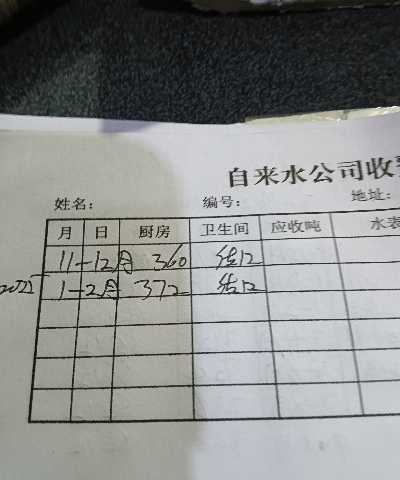 自来水公司收
姓名: 编号: 地址:
月 日 厨房 卫生间 应收吨 水表
11-12月 360
1-2月 372